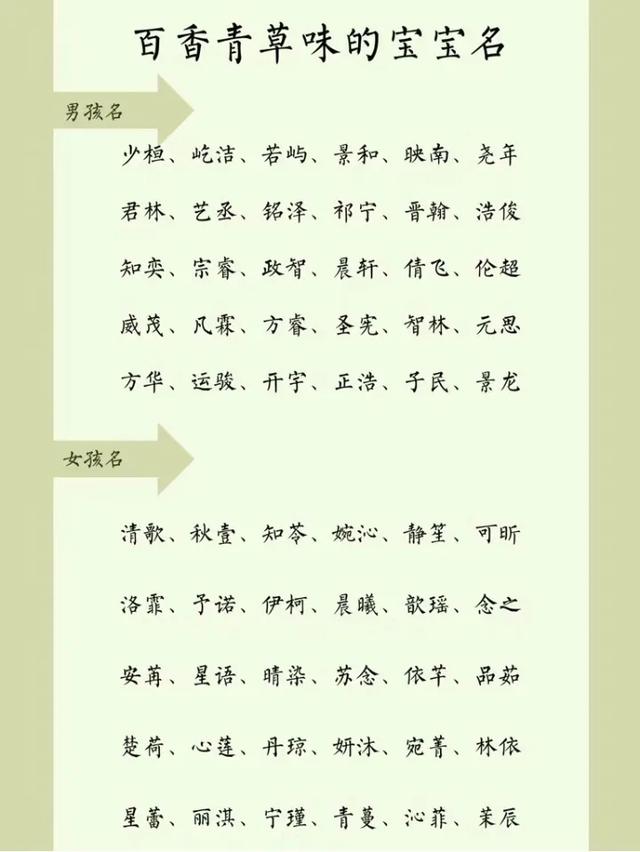 百香青草味的宝宝名
男孩名
少桓、屹洁、若屿、景和、映南、尧年
君林、艺丞、铭泽、祁宁、晋翰、浩俊
知奕、宗睿、政智、晨轩、倩飞、伦超
威茂、凡霖、方睿、圣宪、智林、元思
方华、运骏、开宇、正浩、子民、景龙
女孩名
清歌、秋壹、知苓、婉沁、静笙、可昕
洛霏、予诺、伊柯、晨曦、歆瑶、念之
安苒、星语、晴染、苏念、依芊、品茹
楚荷、心莲、丹琼、妍沐、宛菁、林依
星蕾、丽淇、宁瑾、青蔓、沁菲、茉辰